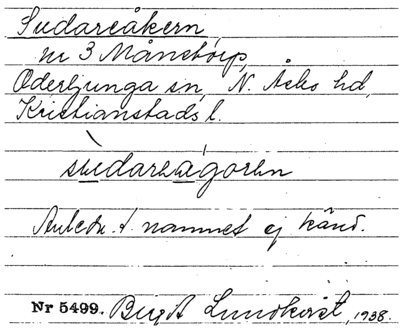 Sudareåkern,
nr 3 Månstorp,
Oderljunga sn, N. Åsbo hd,
Kristianstads l.
Anledn. t. namnet ej känd.
Nr 5499. Birgit Lundkvist, 1938.